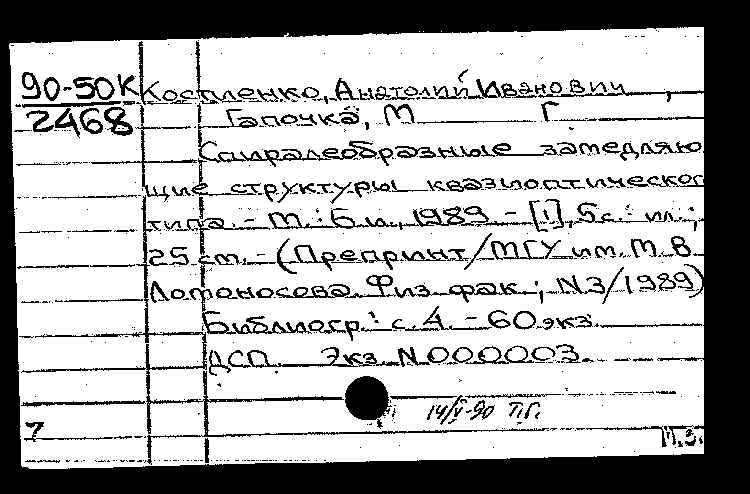 90-50К Костиенко, Анатолий Иванович,
2468 Гапочка, М Г
Спиралеобразные замедляю
щие структуры квазиоптического
типа. - М.: Б.и., 1989. - [1], 5с.: ил.;
25 см. - (Препринт/МГУ им. М.В.
Ломоносова. Физ. фак.; N3/1989)
Библиогр.: с. 4. - 60 экз.
ДСП. Экз. N 000003.
14/V-90 Т.Г.
7
М.З.